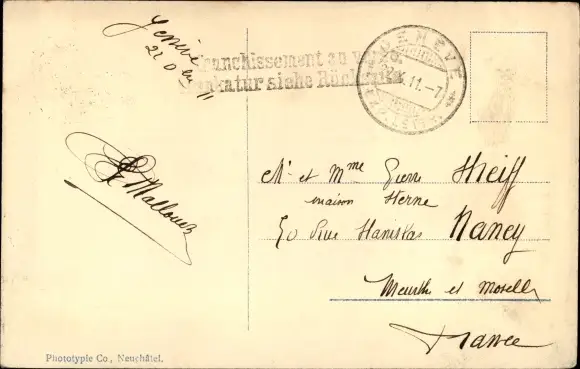 Genève
22 Dec 11
Affranchissement au v
Frankatur siehe Rück
GENÈVE
11.-7
Mr et Mme Pierre Steiff
maison Sterne
50 Rue Stanislas Nancy
Meurthe et Moselle
France
Phototypie Co., Neuchâtel.